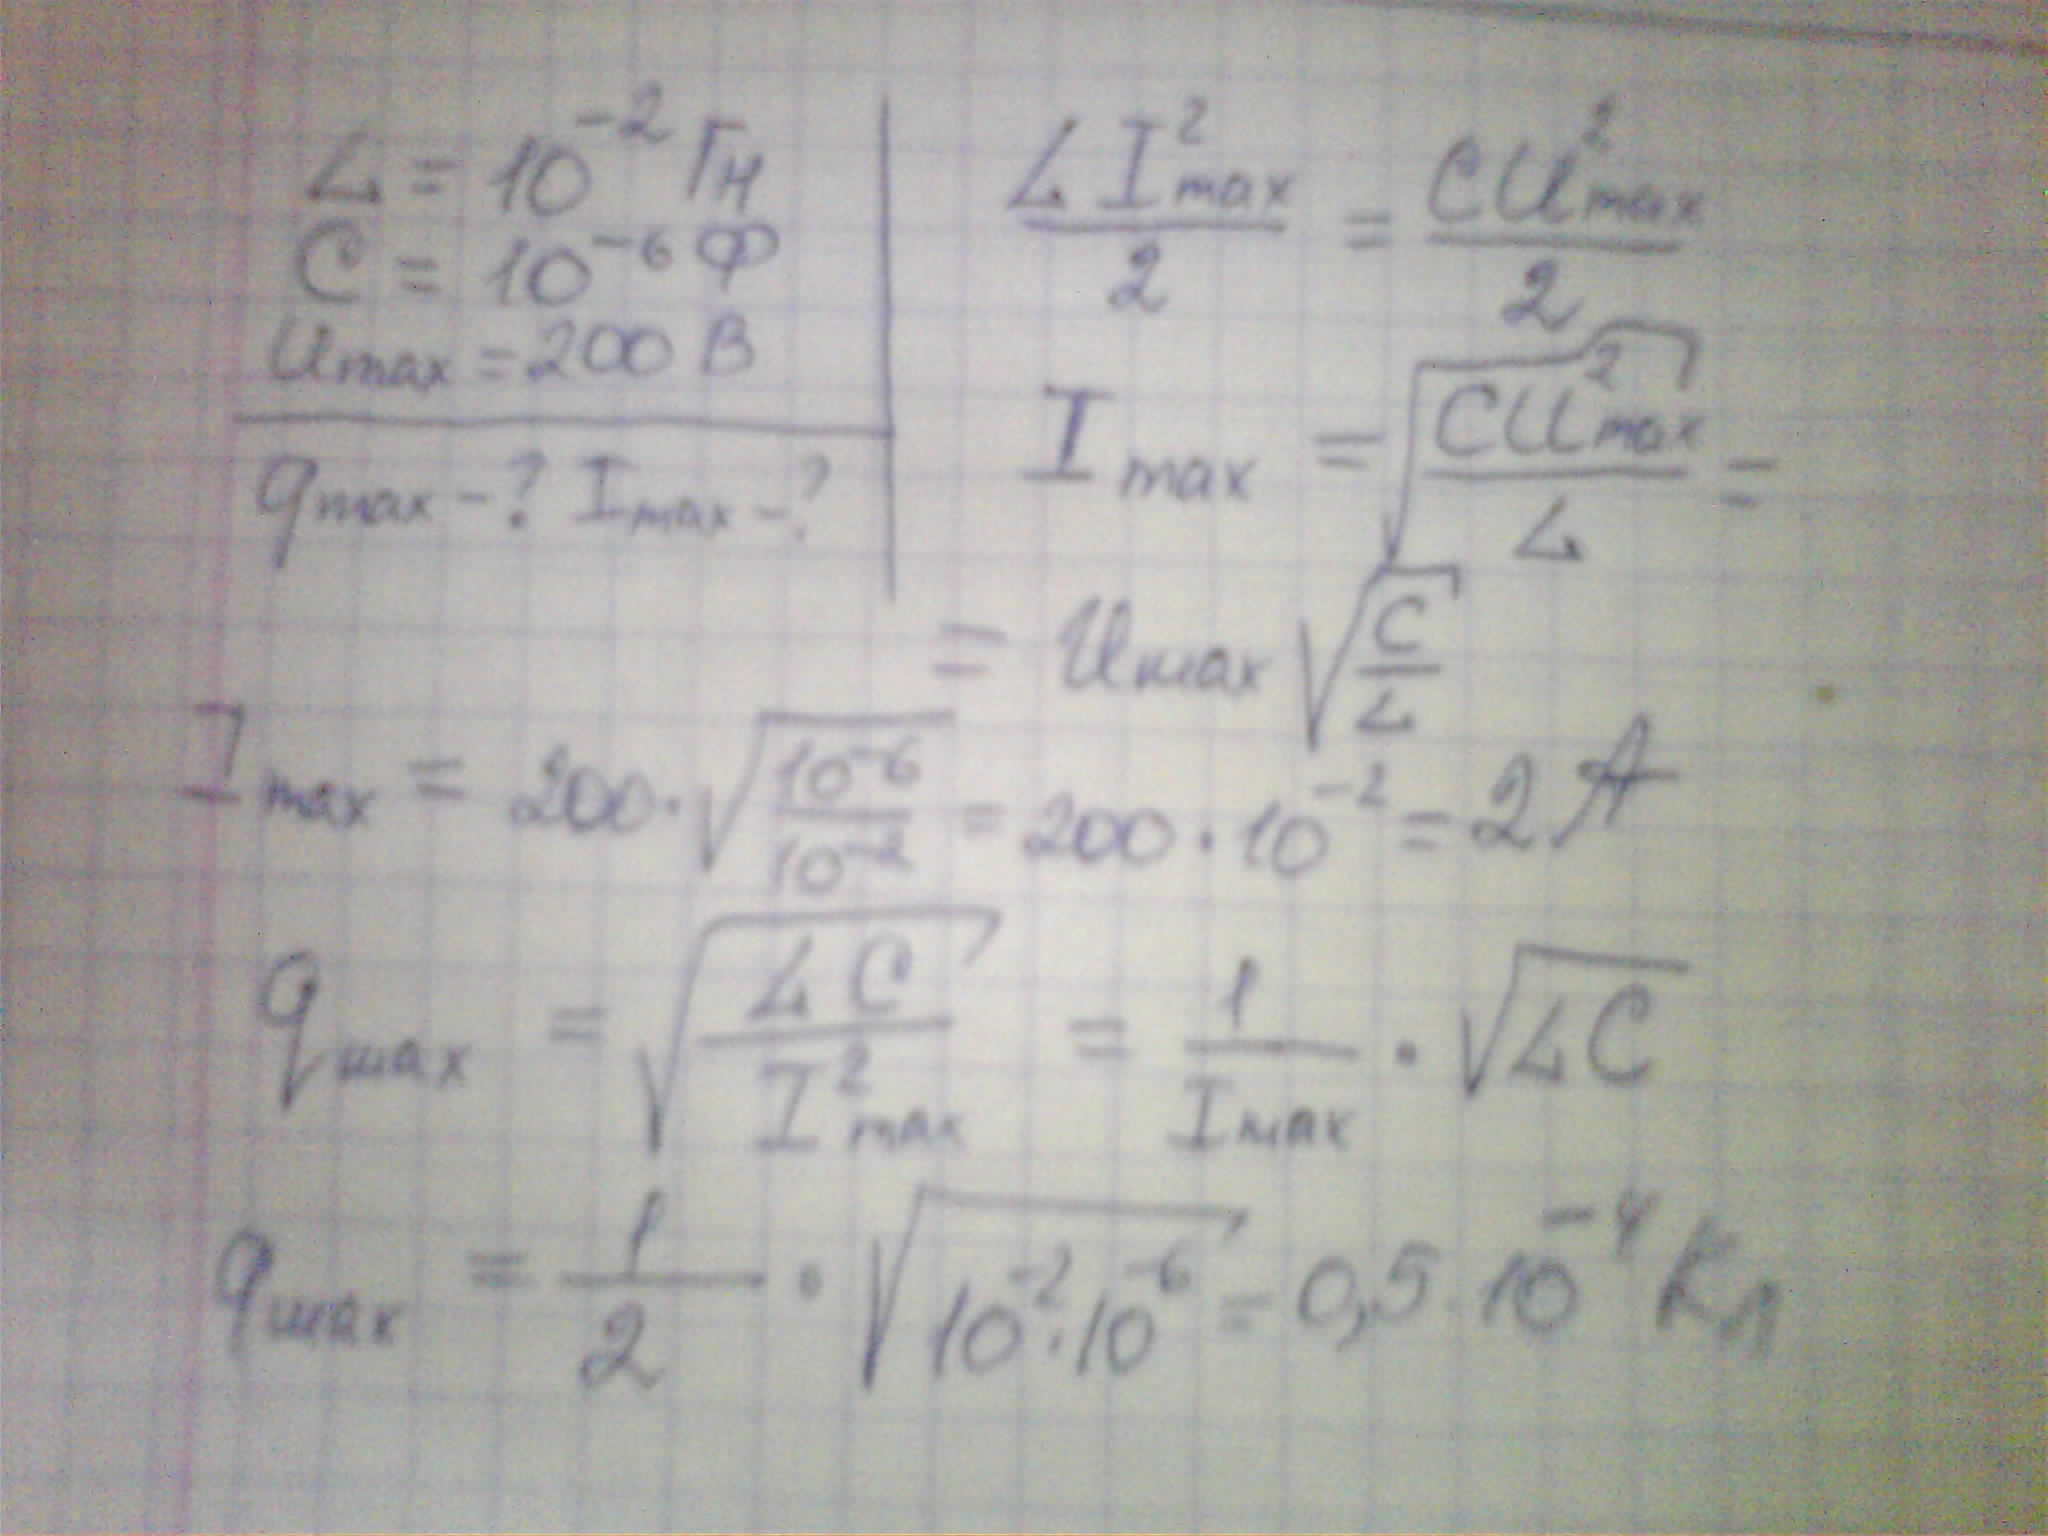 L = 10⁻² Гн
C = 10⁻⁶ Ф
Umax = 200 В
qmax - ? Imax - ?
LI²max/2 = CU²max/2
Imax = √(CU²max/L) =
= Umax √(C/L)
Imax = 200 · √(10⁻⁶/10⁻²) = 200 · 10⁻² = 2 А
qmax = √(LC/I²max) = 1/Imax · √LC
qmax = 1/2 · √(10⁻² · 10⁻⁶) = 0,5 · 10⁻⁴ Кл